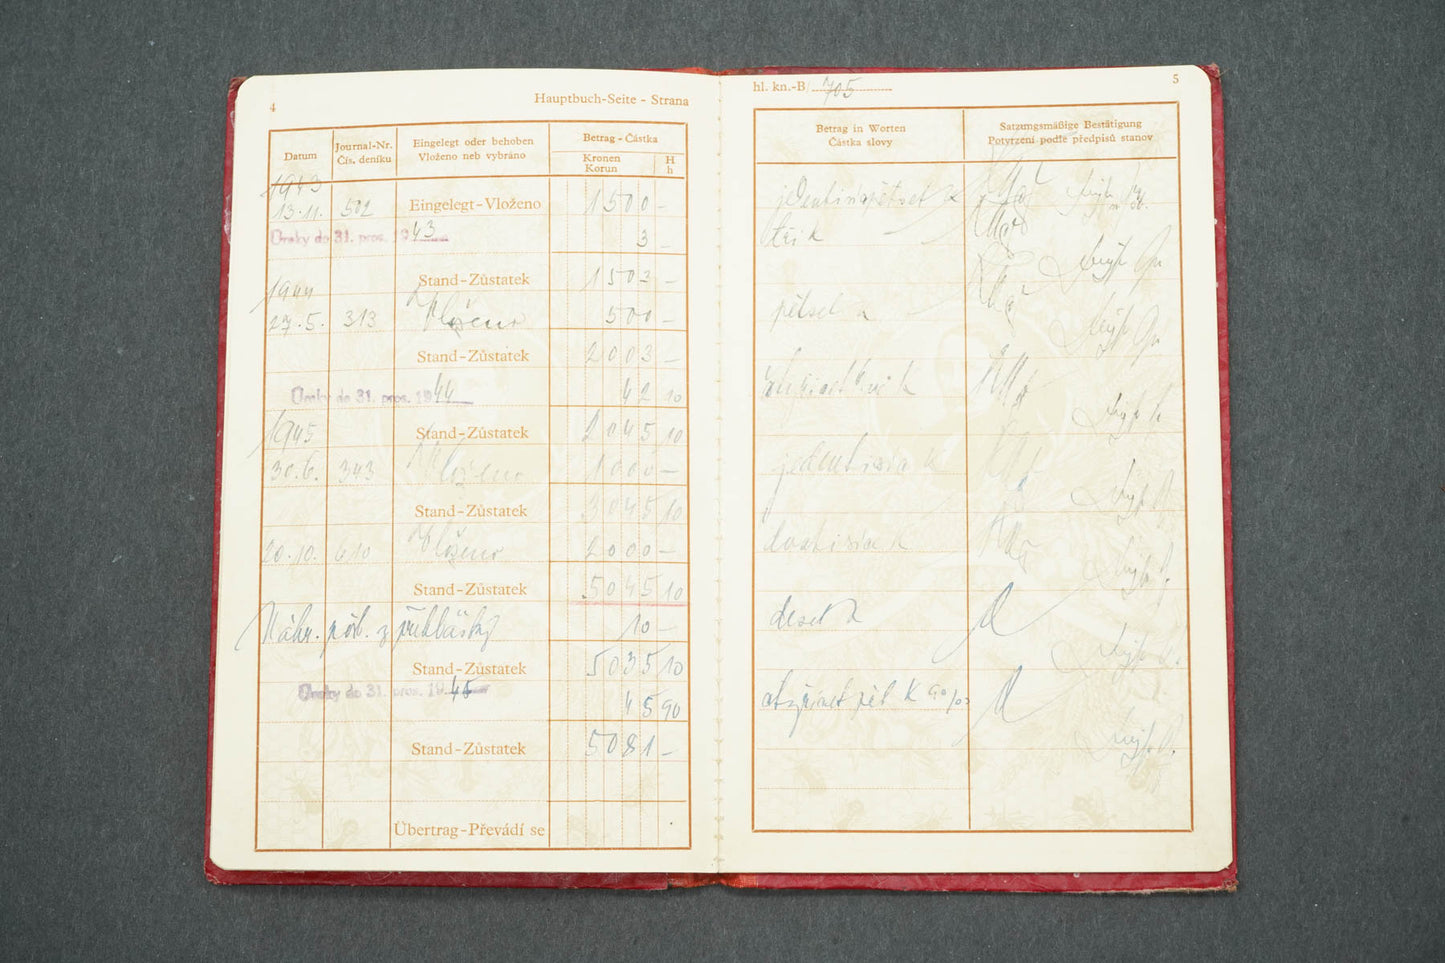 4
Hauptbuch-Seite - Strana
Datum
Journal-Nr.
Čís. deníku
Eingelegt oder behoben
Vloženo neb vybráno
Betrag - Částka
Kronen
Korun
H
h
1943
13.11. 502 Eingelegt-Vloženo 1500 -
Úroky do 31. pros. 1943 3 -
Stand-Zůstatek 1503 -
1944
27.5. 313 Vloženo 500 -
Stand-Zůstatek 2003 -
Úroky do 31. pros. 1944 42 10
1945
Stand-Zůstatek 2045 10
30.6. 343 Vloženo 1000 -
Stand-Zůstatek 3045 10
20.10. 610 Vloženo 2000 -
Stand-Zůstatek 5045 10
Náhr. z přihlášky 10 -
Stand-Zůstatek 5035 10
Úroky do 31. pros. 1945 45 90
Stand-Zůstatek 5081 -
Übertrag-Převádí se
hl. kn.-B/ 705
5
Betrag in Worten
Částka slovy
Satzungsmäßige Bestätigung
Potvrzení podle předpisů stanov
jedentisícpětset K
tři K
pětset K
jedentisíc K
dvatisíce K
deset K
čtyřicet pět K 90